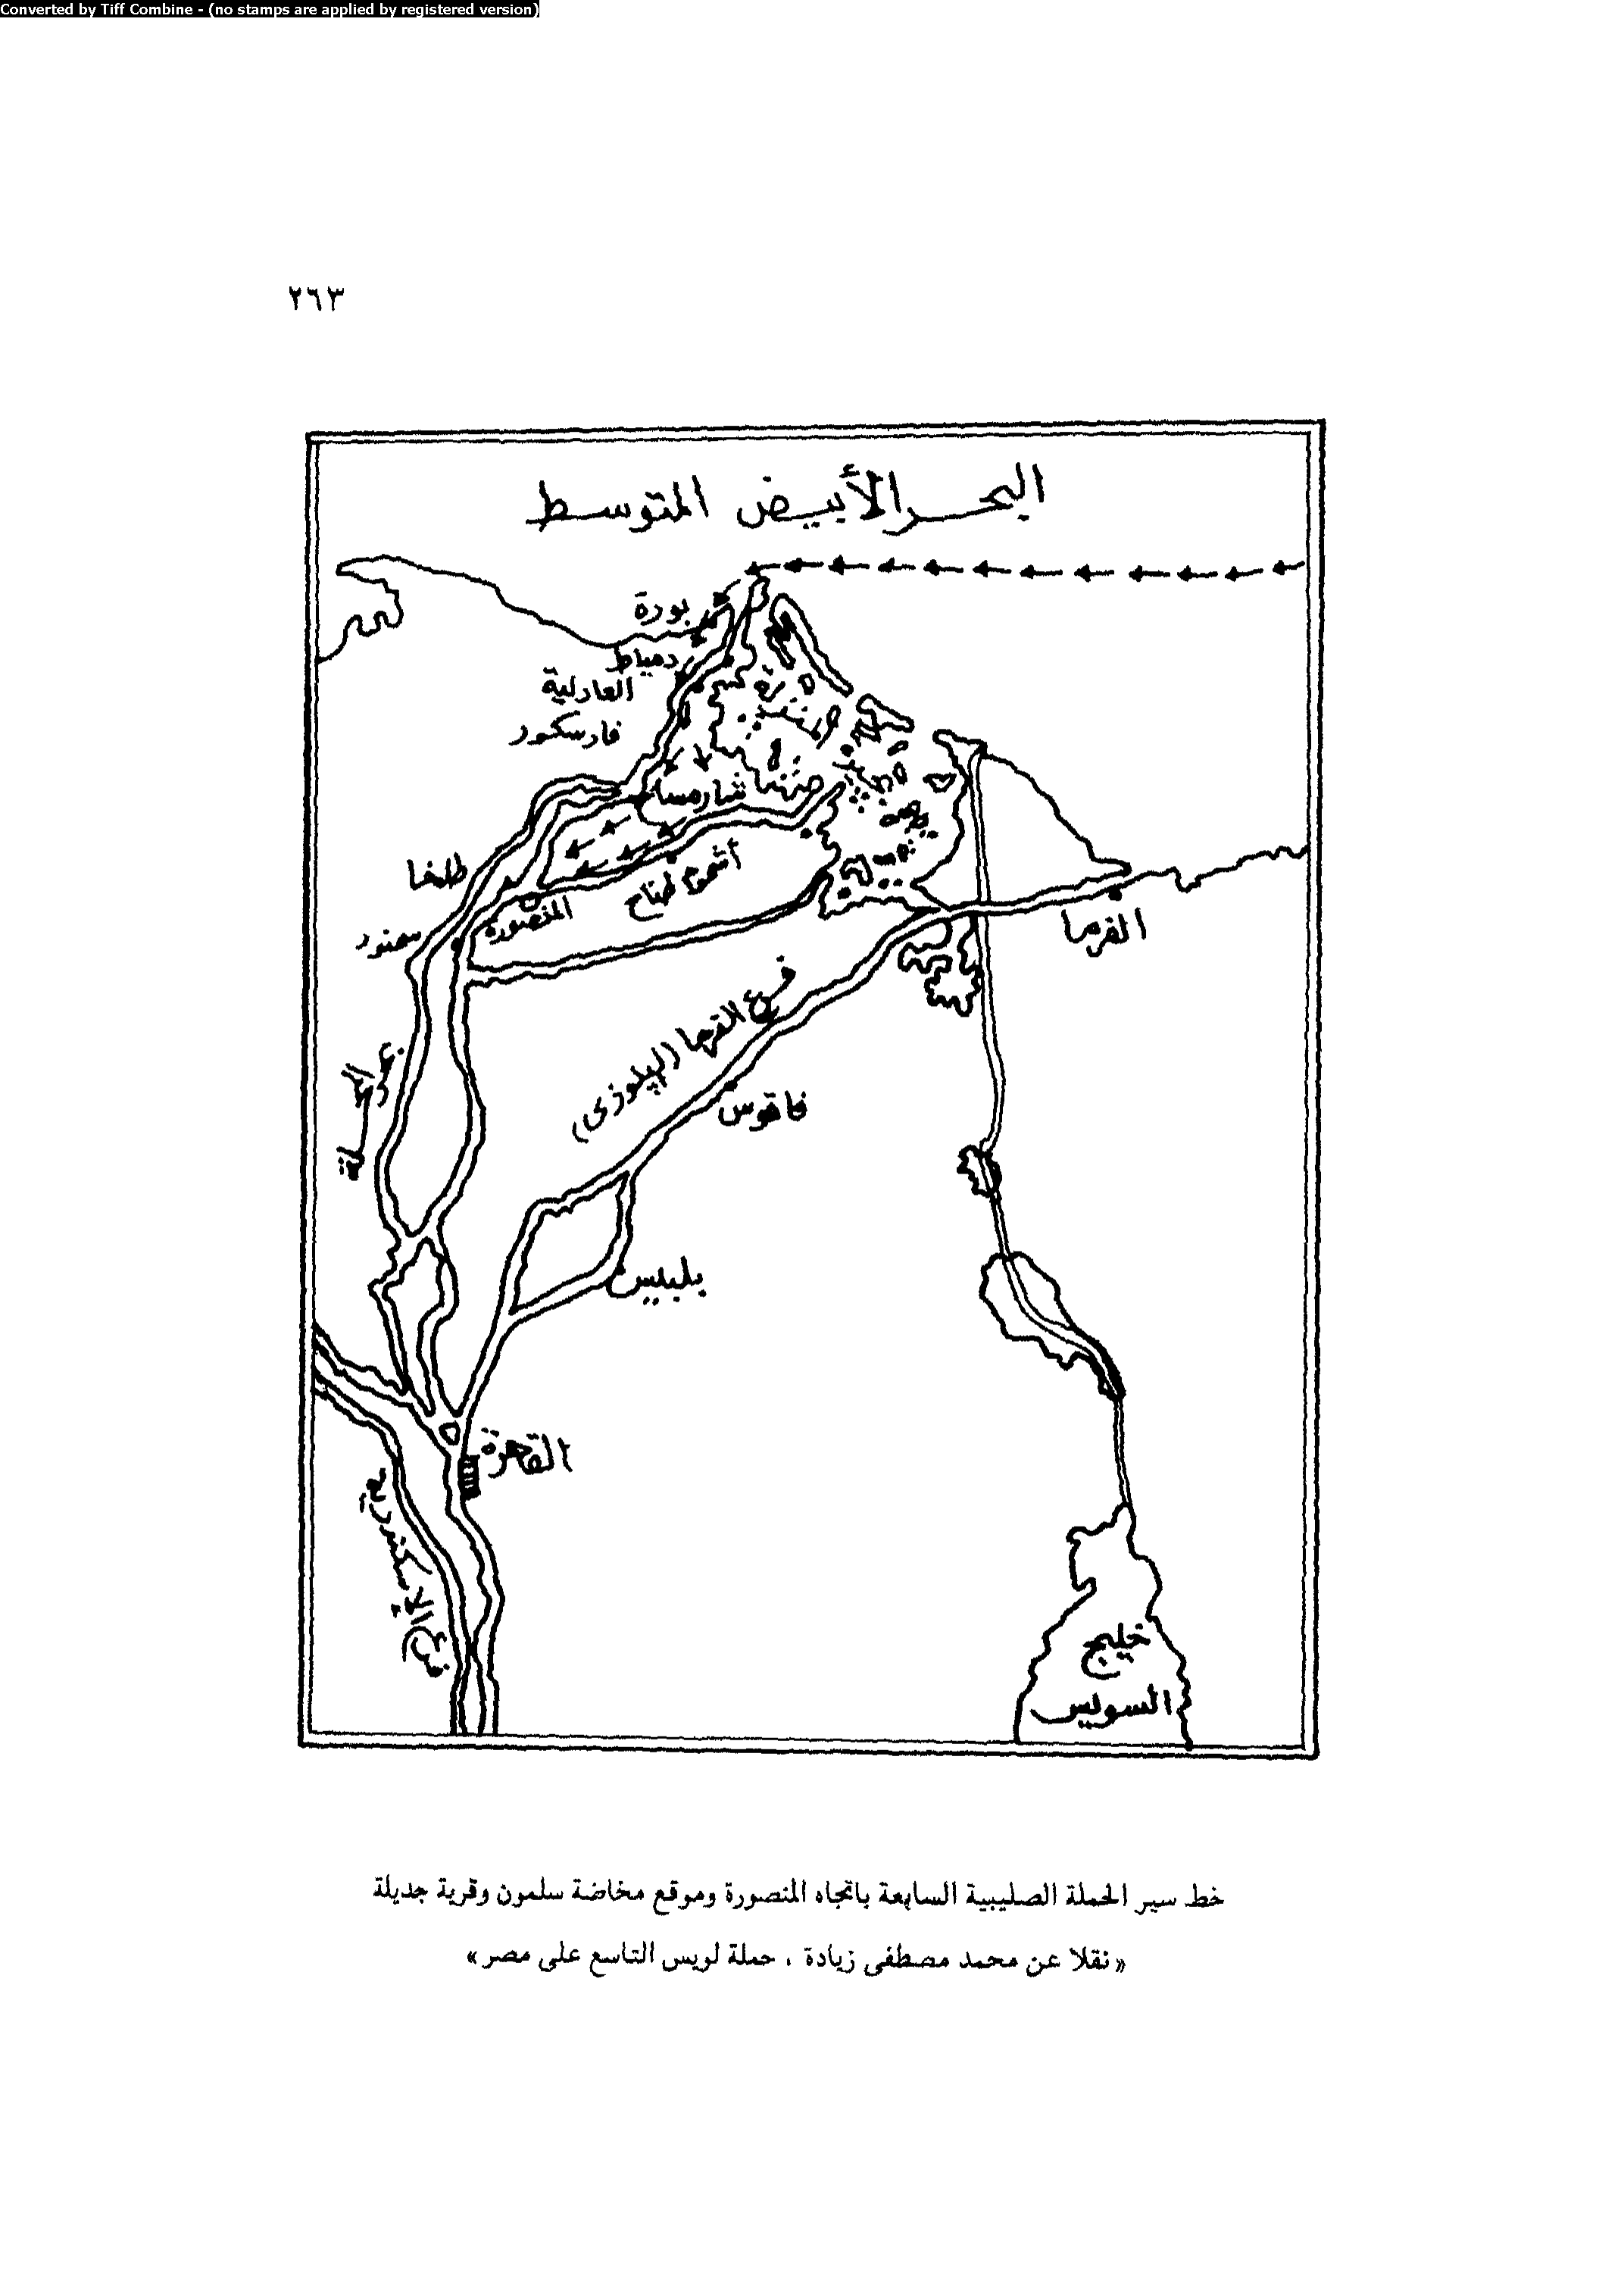 Converted by Tiff Combine - (no stamps are applied by registered version)
٢٦٣
البحر الأبيض المتوسط
بورة
دمياط
العادلية
فارسكور
شارمساح
طلخا
أشموم طناح
المنصورة
سمنود
الفرما
فرع الفرما (البيلوزى)
فاقوس
بلبيس
القاهرة
خليج
السويس
خط سير الحملة الصليبية السابعة باتجاه المنصورة وموقع مخاضة سلمون وقرية جديلة
« نقلا عن محمد مصطفى زيادة ، حملة لويس التاسع على مصر »